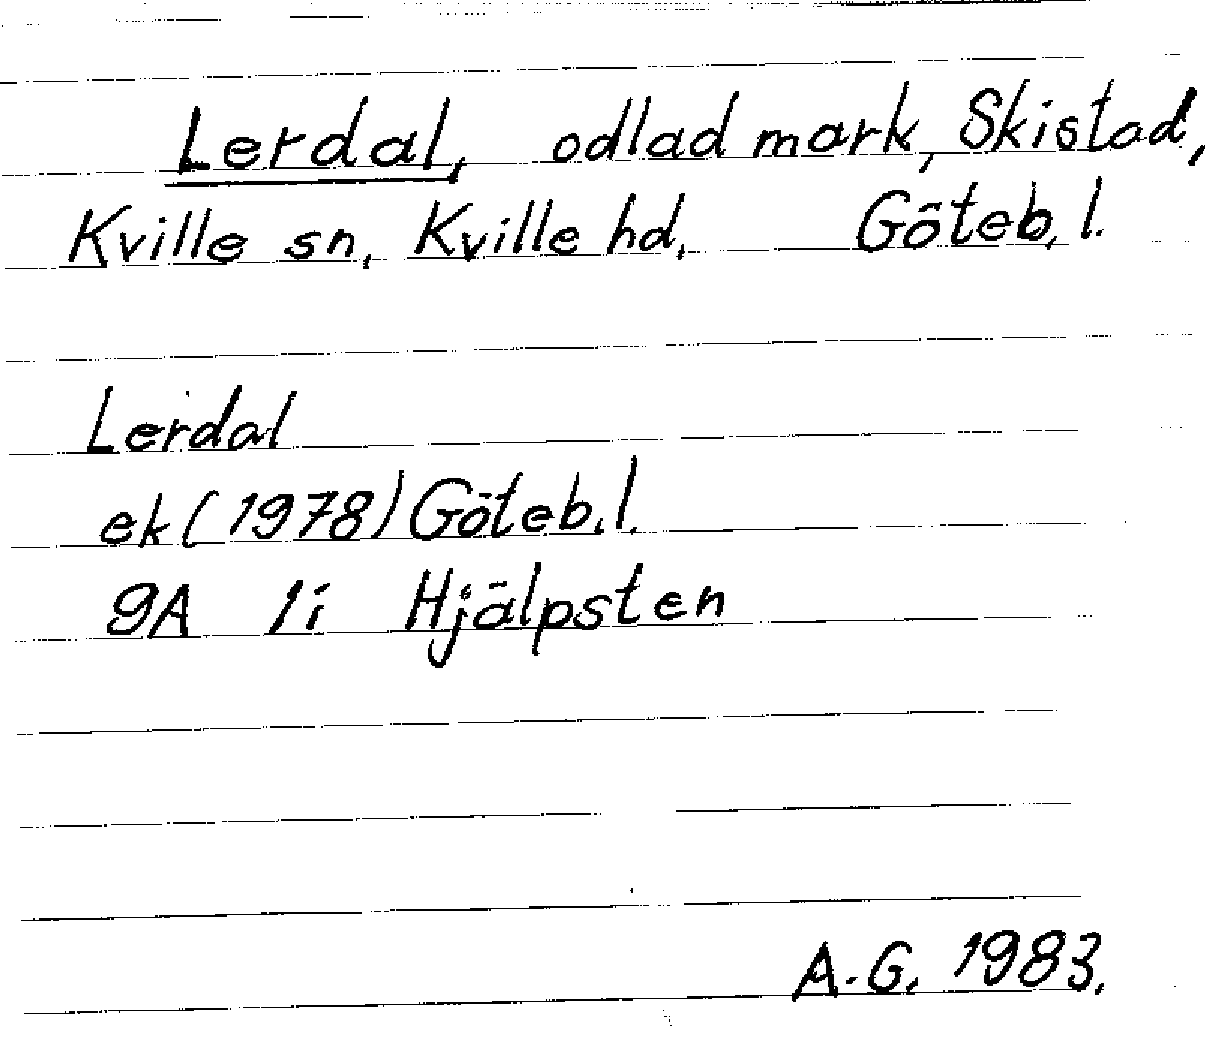 Lerdal, odlad mark, Skistad,
Kville sn, Kville hd, Göteb. l.
Lerdal
ek (1978) Göteb. l.
9A 1i Hjälpsten
A.G. 1983.